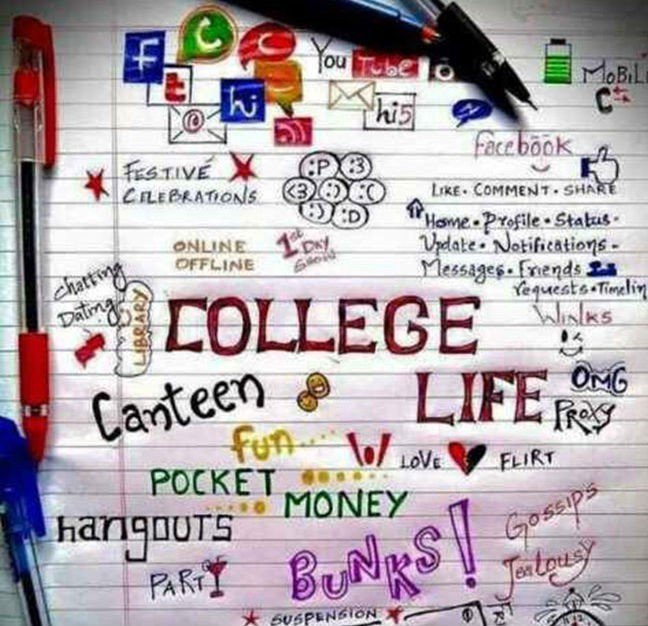 f
t
hi
@
You Tube
hi5
MOBIL
Facebook
LIKE • COMMENT • SHARE
Home • Profile • Status •
Update • Notifications •
Messages • Friends
requests • Timelin
WINKS
FESTIVE
CELEBRATIONS
:P :3
<3 :) :(
:) :D
ONLINE
OFFLINE
1st
DAY
SHOW
chatting
Dating
LIBRARY
COLLEGE
LIFE
OMG
PROXY
Canteen
fun....
LOVE
FLIRT
POCKET
MONEY
hangouts
PARTY
BUNKS!
Gossips
Jealousy
SUSPENSION